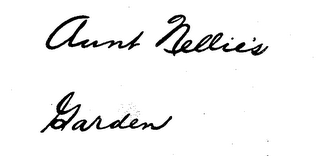 Aunt Nellie's
Garden